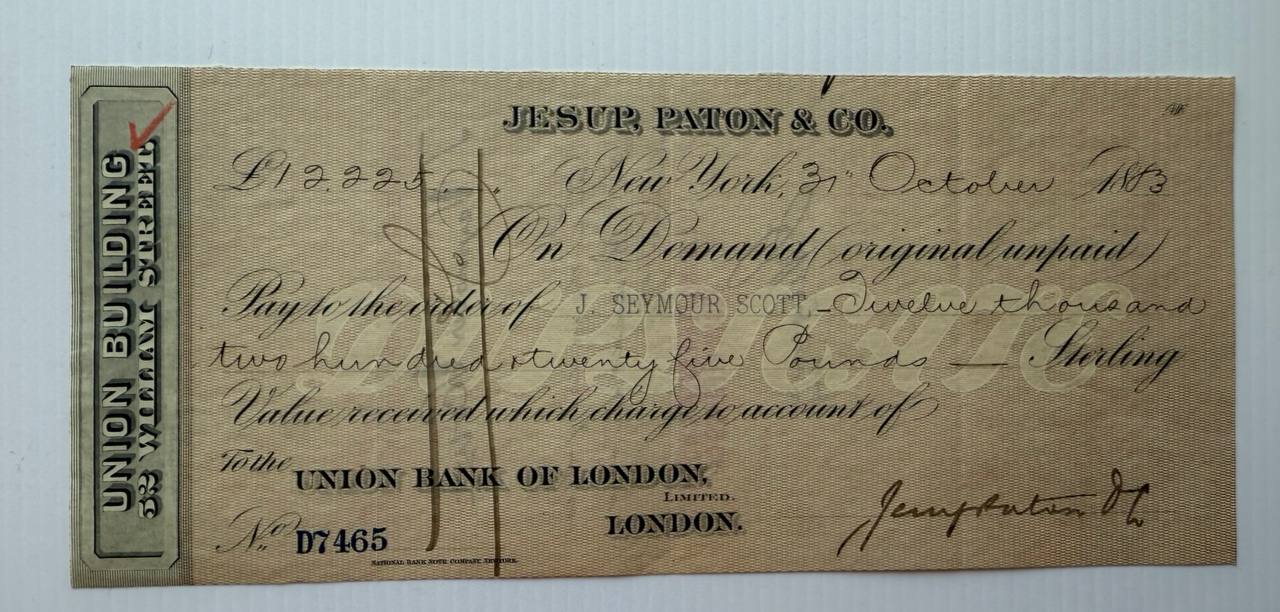 JESUP, PATON & CO.
£12.225.—. New York, 31st October 1883
On Demand (original unpaid)
Pay to the order of J. SEYMOUR SCOTT,—Twelve thousand
two hundred & twenty five Pounds — Sterling
Value received which charge to account of
To the UNION BANK OF LONDON,
LIMITED.
LONDON.
No. D7465
NATIONAL BANK NOTE COMPANY NEW YORK.
Jesup Paton & Co
UNION BUILDING
52 WILLIAM STREET
DUPLICATE